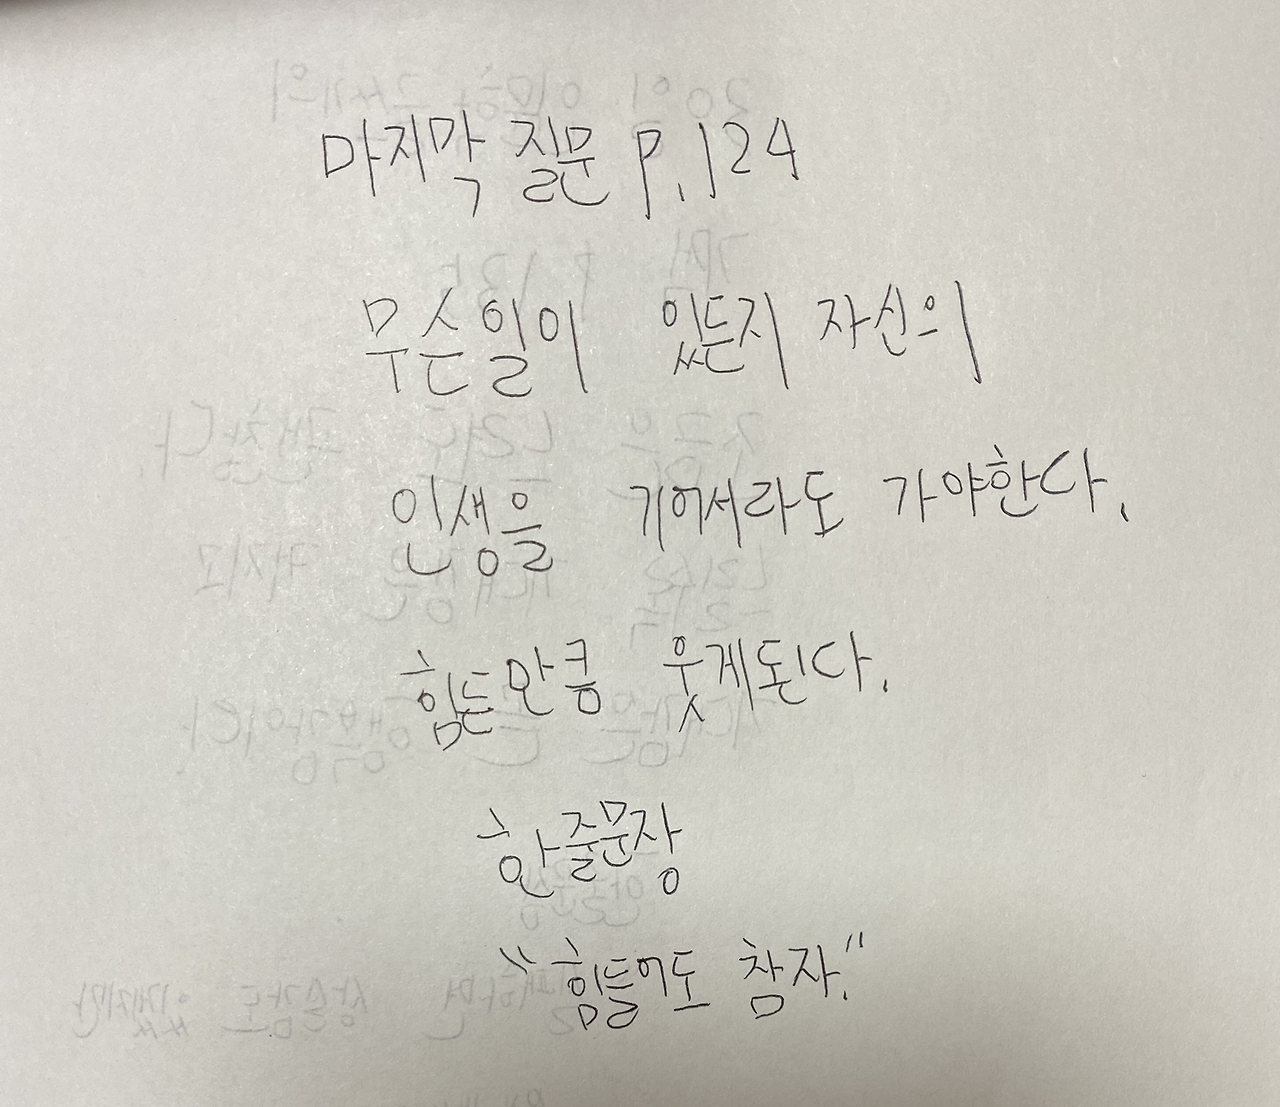 마지막 질문 P.124
무슨일이 있든지 자신의
인생을 기어서라도 가야한다.
힘든만큼 웃게된다.
한줄문장
"힘들어도 참자."